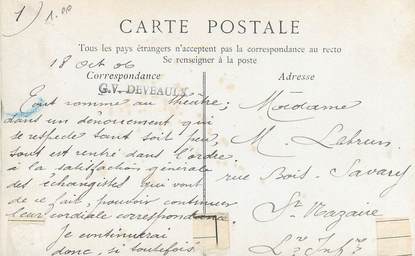 1) 1.PP
CARTE POSTALE
Tous les pays étrangers n'acceptent pas la correspondance au recto
Se renseigner à la poste
18 Oct 06
Correspondance
G.V. DEVEAULX
Tout comme au théâtre,
dans un dénouement qui
se respecte tant soit peu,
tout est rentré dans l'ordre
à la satisfaction générale
des échangistes qui vont
de ce fait, pouvoir continuer
leur cordiale correspondance.
Je continuerai
donc, si toutefois
Adresse
Madame
M. Lebrun
rue Bois-Savary
St Nazaire
Lre Infre